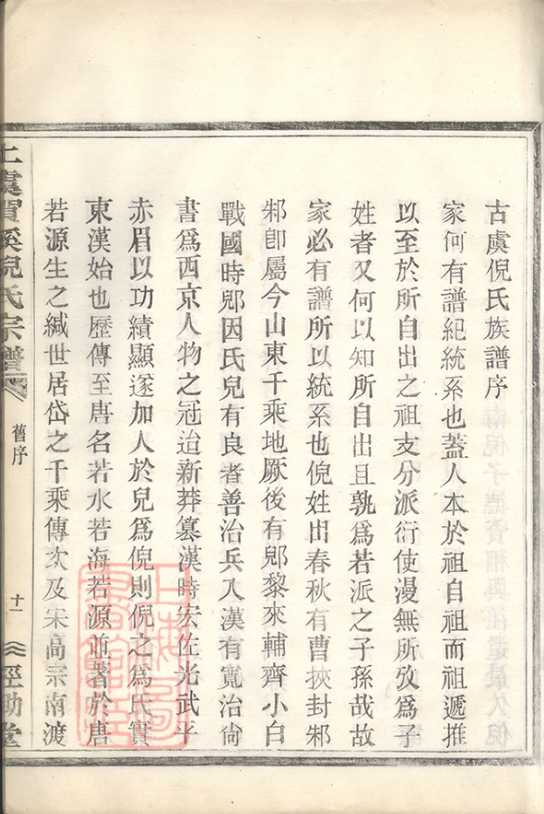 古虞倪氏族譜序
家何有譜紀統系也蓋人本於祖自祖而祖遞推
以至於所自出之祖支分派衍使漫無所攷爲子
姓者又何以知所自出且孰爲若派之子孫哉故
家必有譜所以統系也倪姓出春秋有曹挾封邾
邾卽屬今山東千乘地厥後有郳黎來輔齊小白
戰國時郳因氏兒有良者善治兵入漢有寬治尙
書爲西京人物之冠迨新莽篡漢時宏佐光武平
赤眉以功績顯遂加人於兒爲倪則倪之爲氏實
東漢始也歷傳至唐名若水若海若源並著於唐
若源生之緘世居岱之千乘傳次及宋高宗南渡
上虞賀溪倪氏宗譜
舊序
十一
經勤堂